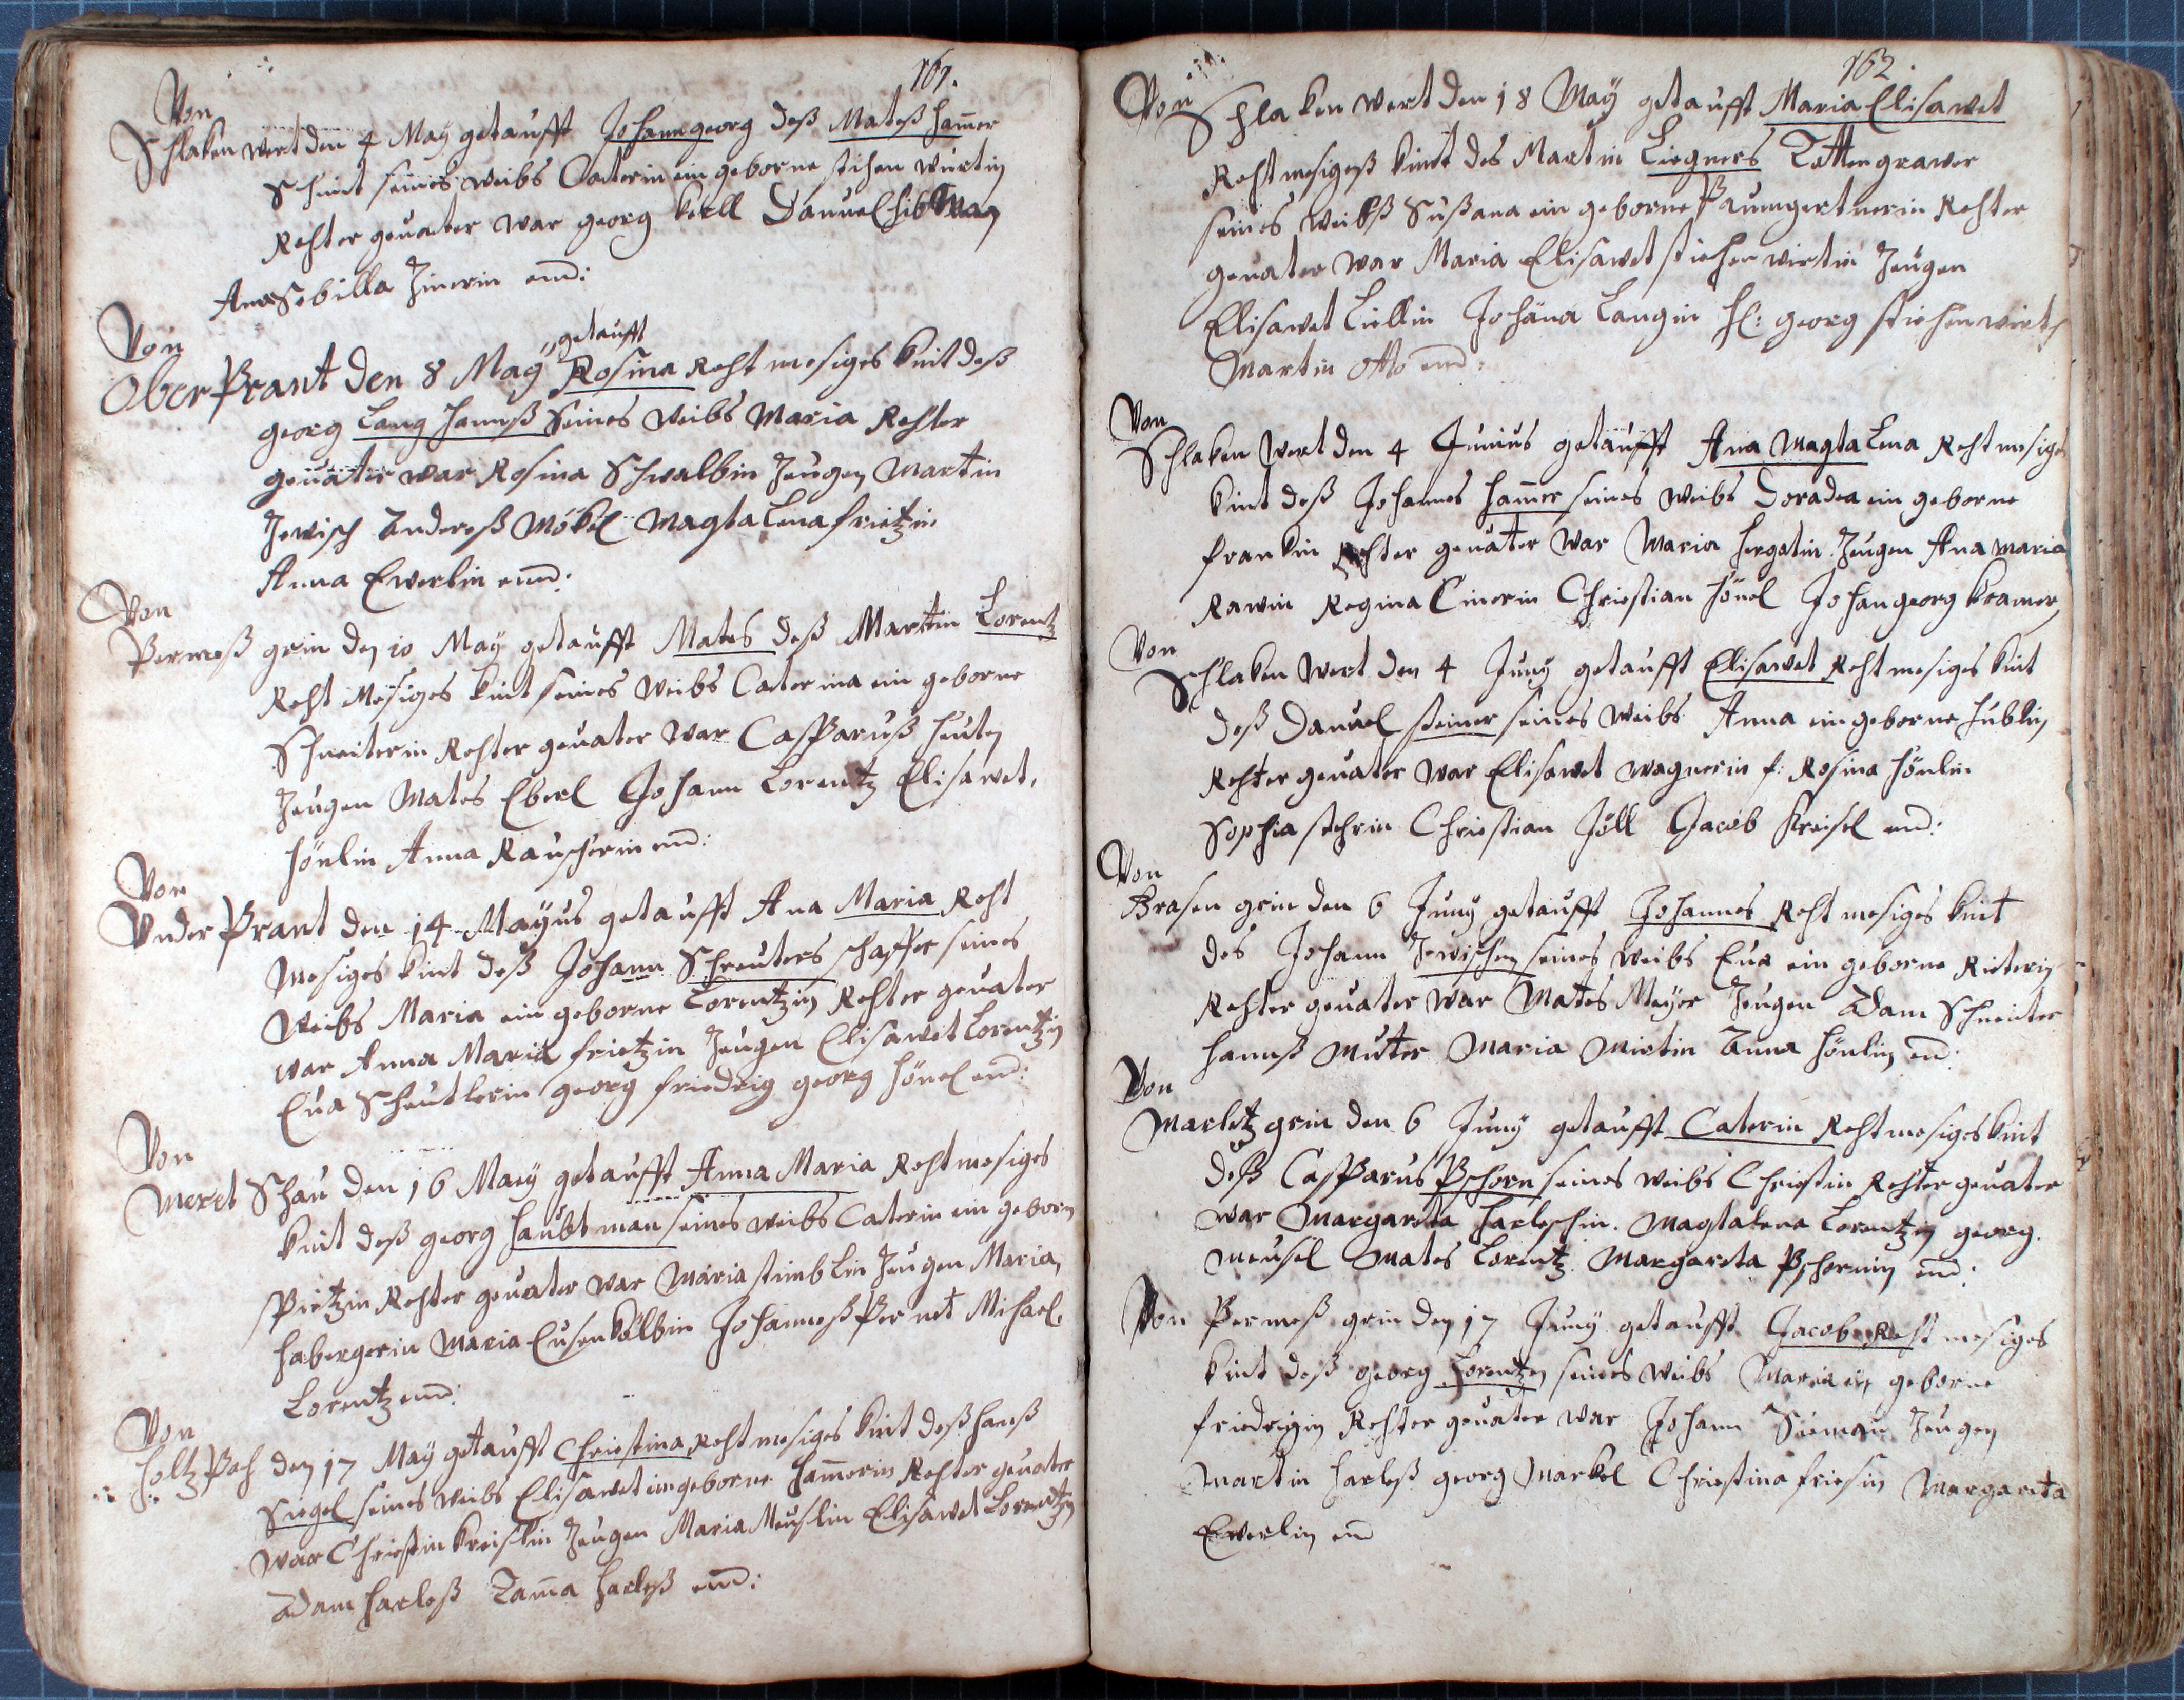 161.
Von
Schlaken wert den 4 Maÿ getaufft Johann georg deß Mateß hamer
Schmit seines weibs Caterin ein geborne stihen wirtin
Rehter geuater war georg kell Danuel
Ana Sebilla Zinerin end:
Von
getaufft
Ober Prant den 8 Maÿ Rosina Reht mesiges kint deß
georg Lang hannß Seines weibs Maria Rehter
geuater war Rosina Schwalbin Zeugen Martin
Zewisch Andereß Mökel Magtalena frietzin
Anna Ewerlin end:
Von
Permeß grin den 10 May getaufft Mates deß Martin Lorentz
Reht Mesiges kint seines weibs Caterina ein geborne
Schneiterin Rehter geuater war Casparuß heuten
Zeugen Mates Eberl Johann Lorentz Elisawet
hönlin Anna Rauscherin end:
Von
Vnder Prant den 14 Mayus getaufft Ana Maria Reht
Mesiges kint deß Johann Schreuters schaffer seines
Weibs Maria ein geborne Lorentzin Rehter geuater
war Anna Maria frietzin Zeugen Elisawet Lorentzin
Eua Scheutlerin georg friedrig georg hönel end:
Von
Meret Schau den 16 Maÿ getaufft Anna Maria Reht mesiges
kint deß georg haubtman seines weibs Caterin ein geborn
Pietzin Rehter geuater war Maria stimblin Zeugen Maria
habergerin Maria Eusenkolbin Johanneß Pernet Mihael
Lorentz end:
Von
holtz Pah den 17 May getaufft Christina Reht mesiges kint deß hanß
Siegel seines weibs Elisawet ein geborne hamerin Rehter geuater
war Christin kreislin Zeugen Maria Meuslin Elisawet Lorentzin
Adam harleß Tama harleß end:
162
Von Schlaken wert den 18 May getaufft Maria Elisawet
Reht mesigeß kint des Martin Liegners Tottengrawer
seines weibß Sußana ein geborne Paumgertnerin Rehter
geuater war Maria Elisawet stiehen wirtin Zeugen
Elisawet Liellin Johäna Langin H: georg stiehen wirth
Martin Otto end:
Von
Schlaken Wert den 4 Junius getaufft Ana Magtalena Reht mesiges
kint deß Johannes hamer seines weibs Doradea ein geborne
frankin Rehter geuater war Maria hergetin Zeugen Ana Maria
Rawin Regina Cinerin Christian hönel Johan georg kramer
Von
Schlaken Wert den 4 Juny getaufft Elisawet Reht mesiges kint
deß Danuel steiner seines weibs Anna ein geborne hüblin
Rehter geuater war Elisawet wagnerin f: Rosina hönlin
Sophia stehrin Christian Jöll Jacob Kreisel end:
Von
Brasen grin den 6 Juny getaufft Johannes Reht mesiges kint
des Johann Zewischen seines weibs Eua ein geborne Rieterin
Rehter geuater war Mates Mayer Zeugen Adam Schneiter
hannß Muter Maria Mietin Anna hönlin end:
Von
Marletz grin den 6 Juny getaufft Caterin Reht mesiges kint
deß Casparus Pschorn seines weibs Christin Rehter geuater
war Margareta harleshin. Magtalena Lorentzin georg.
meusel Mates Lorentz Margareta Pschornin end:
Von Permeß grin den 17 Juny getaufft Jacob Reht mesiges
kint deß georg Lorentzen seines weibs Maria ein geborne
friedrigin Rehter geuater war Johann Sieman Zeugen
Martin harleß georg Markel Christina friesin Margareta
Ewerlin end